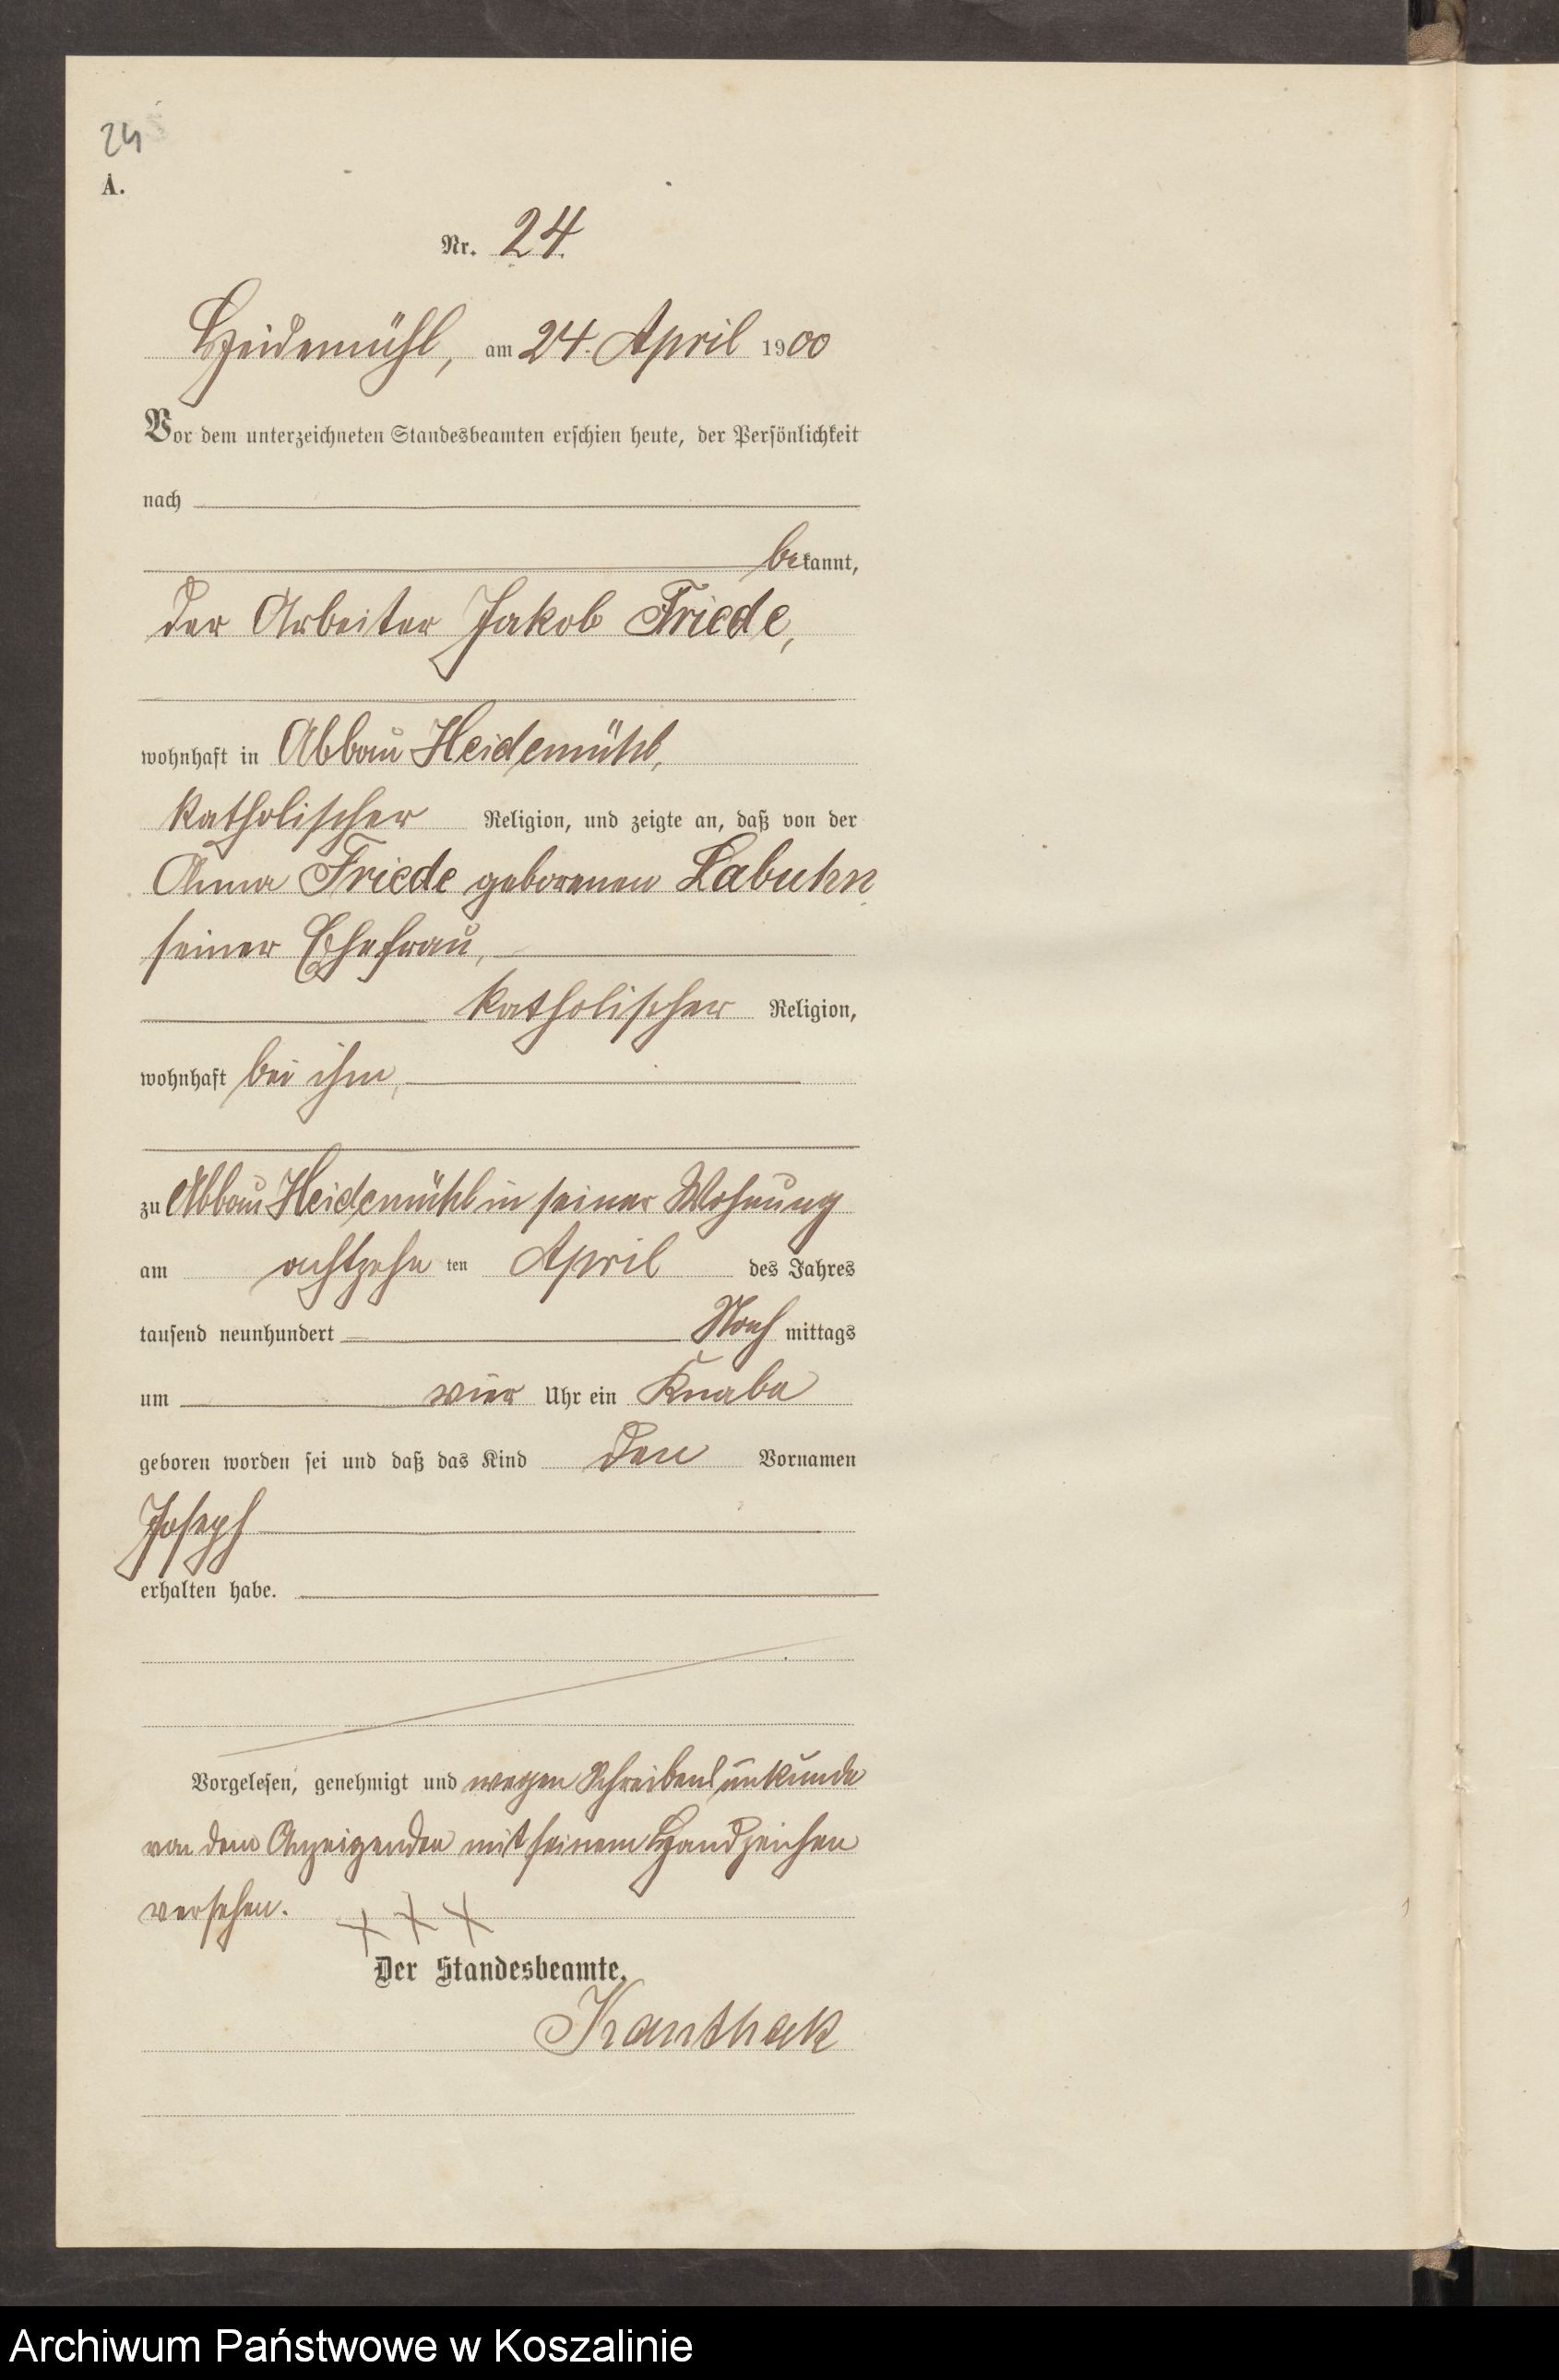 24
A.
Nr. 24.
Heidemühl, am 24. April 1900
Vor dem unterzeichneten Standesbeamten erschien heute, der Persönlichkeit
nach
bekannt,
der Arbeiter Jakob Friede,
wohnhaft in Abbau Heidemühl,
katholischer Religion, und zeigte an, daß von der
Anna Friede geborenen Labuhn
seiner Ehefrau,
katholischer Religion,
wohnhaft bei ihm,
zu Abbau Heidemühl in seiner Wohnung
am achtzehn ten April des Jahres
tausend neunhundert Nach mittags
um vier Uhr ein Knabe
geboren worden sei und daß das Kind den Vornamen
Joseph
erhalten habe.
Vorgelesen, genehmigt und wegen Schreibensunkunde
von dem Anzeigenden mit seinem Handzeichen
versehen. + + +
Der Standesbeamte.
Kanthak
Archiwum Państwowe w Koszalinie